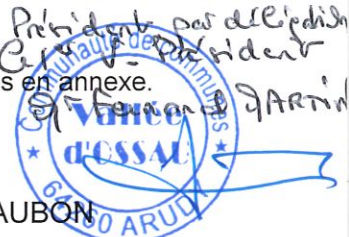 Président par délégation
Le 1er V. Président
s en annexe.
Mr Fernand MARTIN
Communauté de Communes
Vallée
d'OSSAU
64260 ARUDY
AUBON